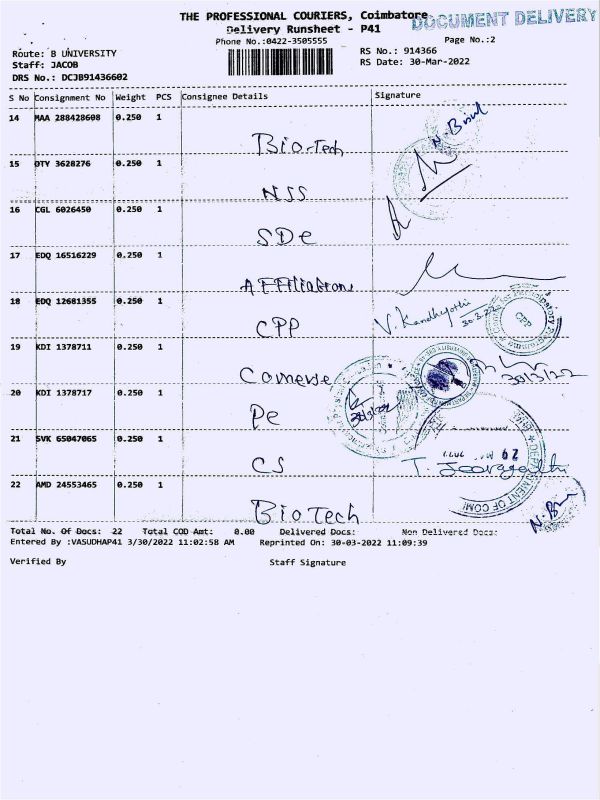 THE PROFESSIONAL COURIERS, Coimbatore
DOCUMENT DELIVERY
Delivery Runsheet - P41
Phone No.:0422-3505555
Page No.:2
Route: B UNIVERSITY
RS No.: 914366
Staff: JACOB
RS Date: 30-Mar-2022
DRS No.: DCJB91436602
S No Consignment No Weight PCS Consignee Details Signature
14 MAA 288428608 0.250 1
Bio-Tech
15 DTY 3628276 0.250 1
NSS
16 CGL 6026450 0.250 1
SDe
17 EDQ 16516229 0.250 1
Affiliations
18 EDQ 12681355 0.250 1
CPP V. Kandhajothi 30.3.22
CPP
19 KDI 1378711 0.250 1
Comerse 30/3/22
20 KDI 1378717 0.250 1
Pe
21 SVK 65047065 0.250 1
CS
22 AMD 24553465 0.250 1
DEPARTMENT OF COM
BioTech
Total No. Of Docs: 22 Total COD Amt: 0.00 Delivered Docs: Non Delivered Docs:
Entered By :VASUDHAP41 3/30/2022 11:02:58 AM Reprinted On: 30-03-2022 11:09:39
Verified By Staff Signature